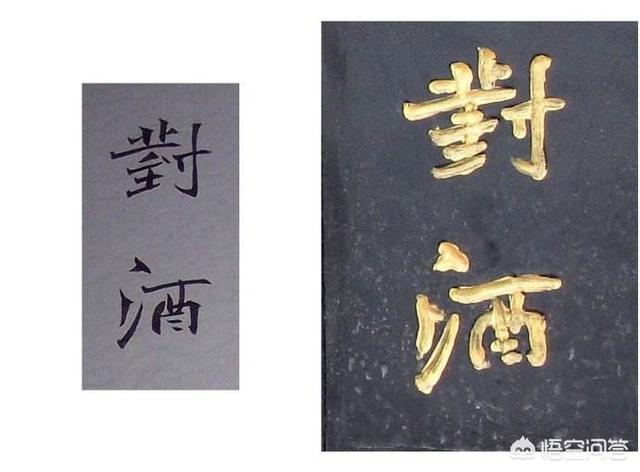 對酒
對酒
悟空问答